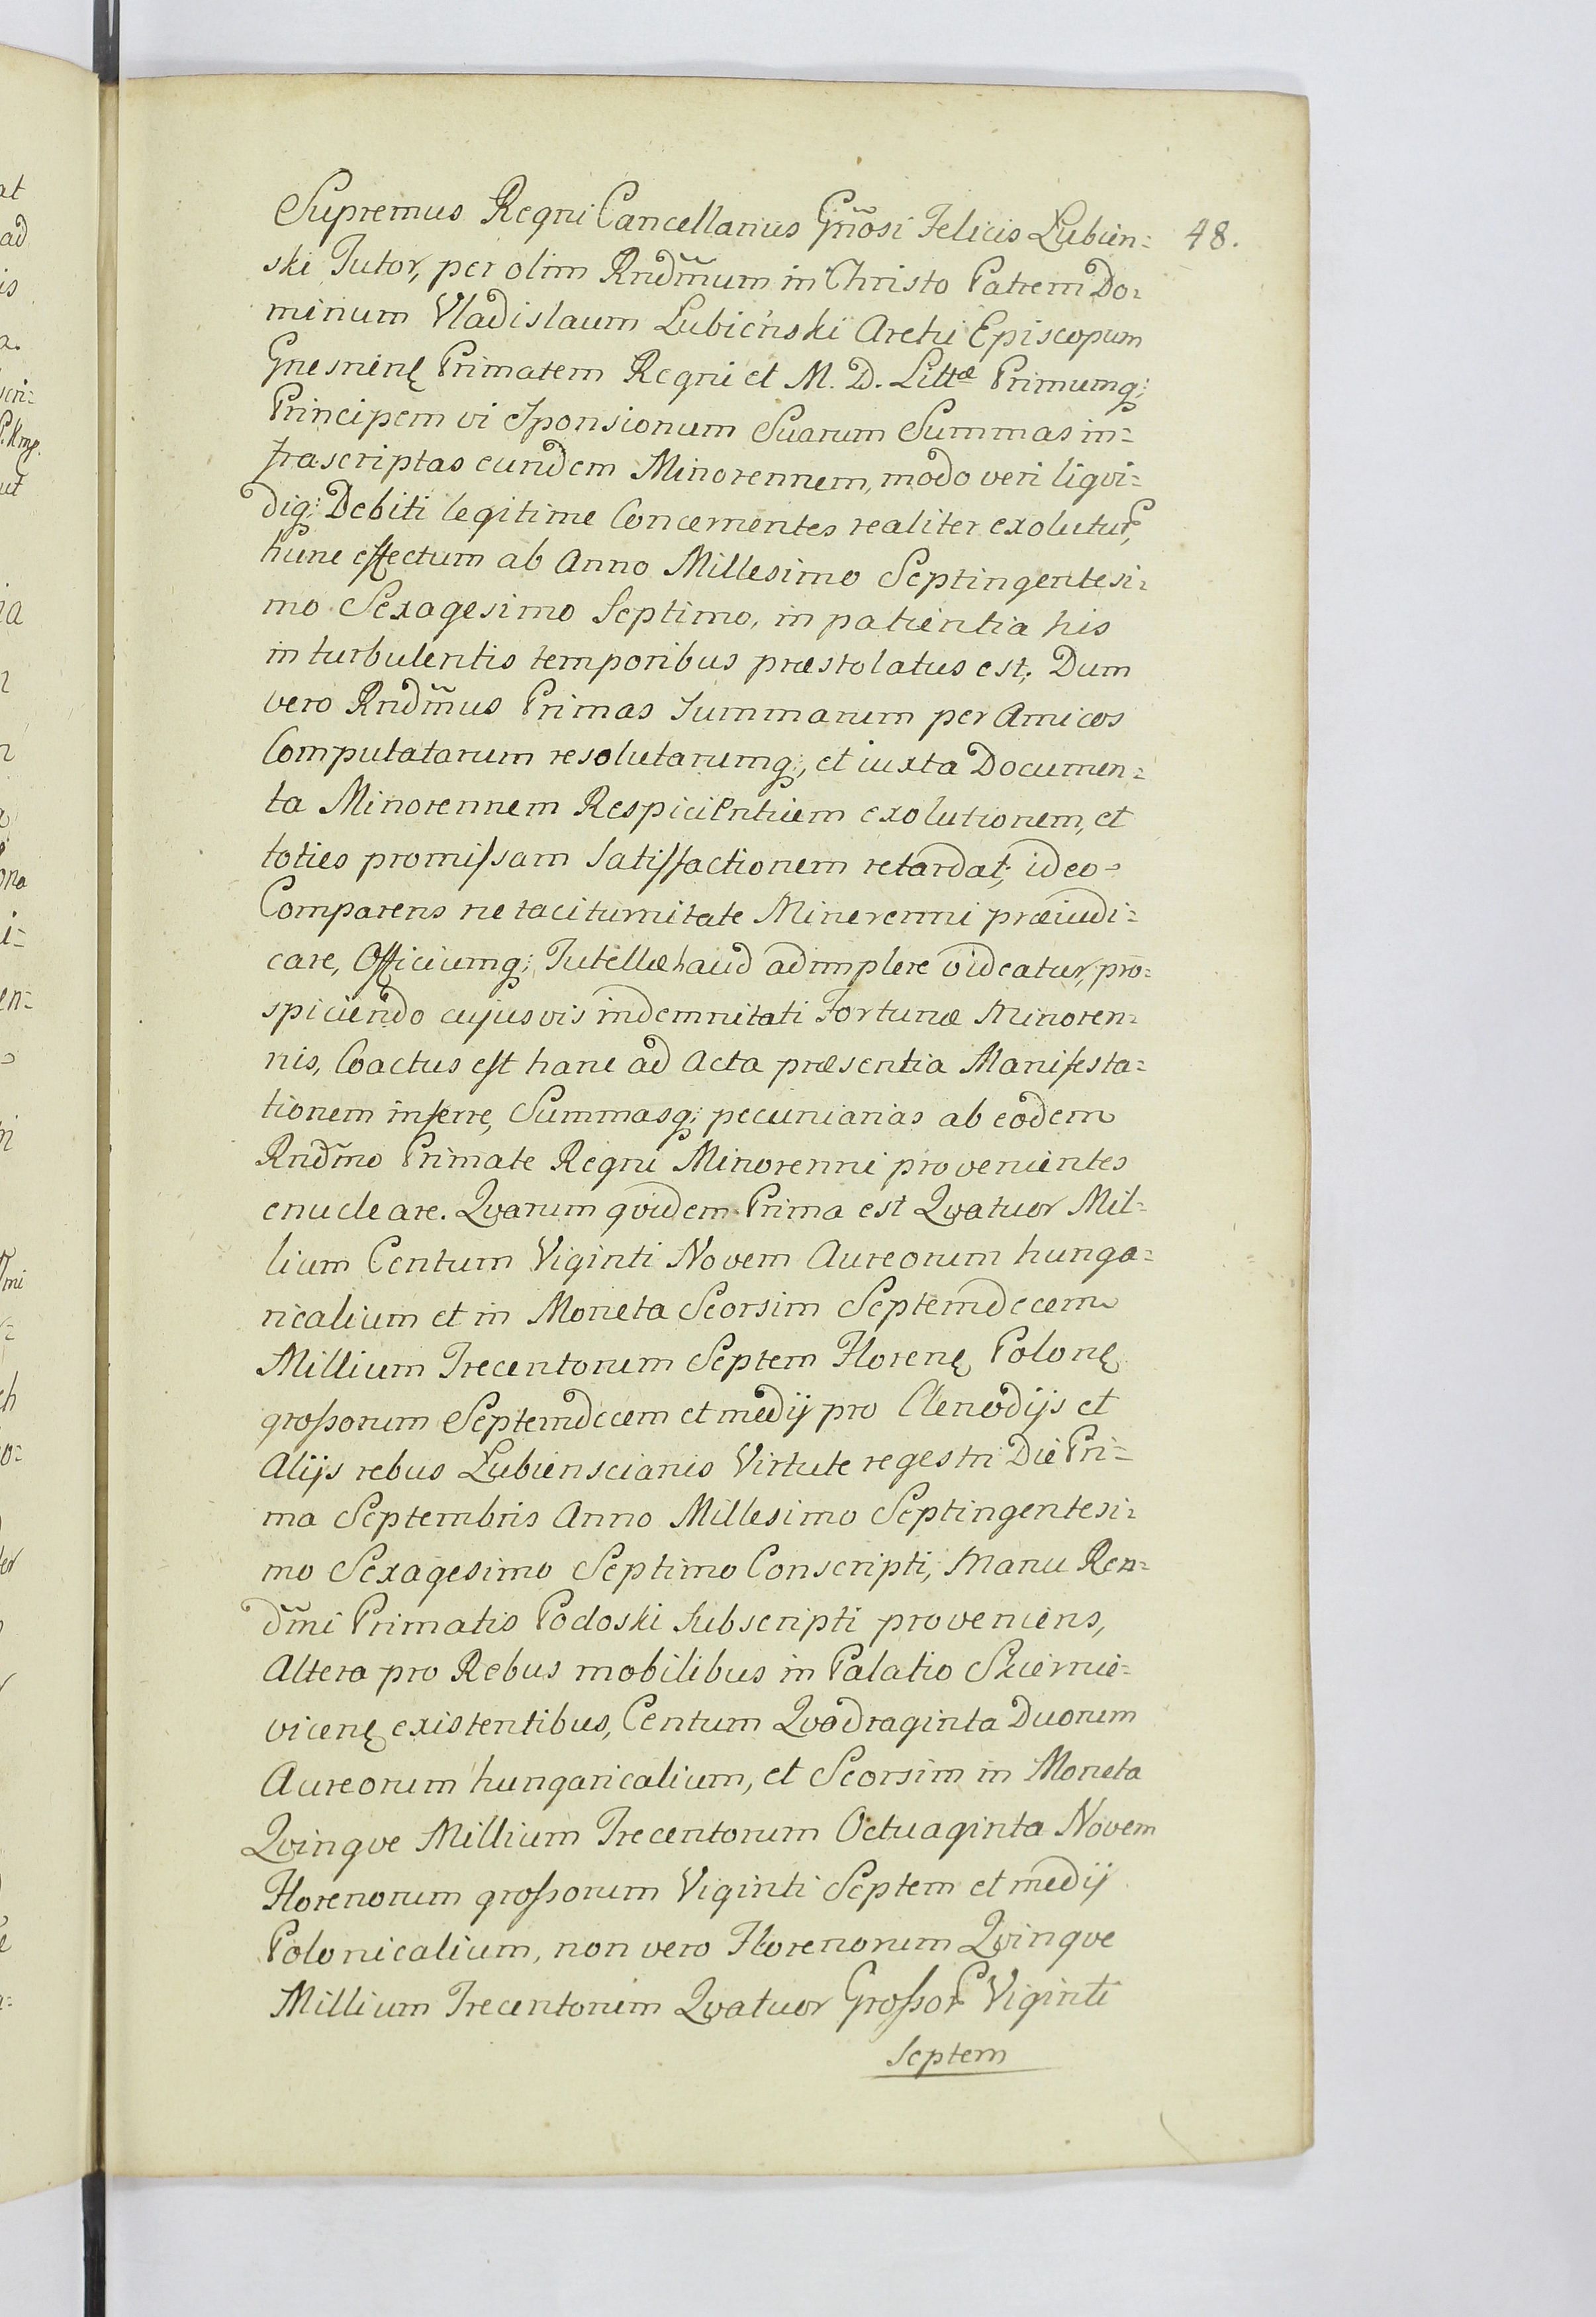 Supremus Regni Cancellarius Gn̄osi Felicis Lubien= 48.
ski Tutor, per olim Rndm̄um in Christo Patrem Do=
minum Vladislaum Lubieński Archi Episcopum
Gnesnenę Primatem Regni et M. D. Littæ Primumq;
Principem vi Sponsionum Suarum Summas in=
frascriptas eundem Minorennem, modo veri liqvi=
diq; Debiti legitime Concernentes realiter exolutur,
hunc effectum ab Anno Millesimo Septingentesi=
mo Sexagesimo Septimo, in patientia his
in turbulentis temporibus præstolatus est; Dum
vero Rndm̄us Primas Summarum per Amicos
Computatarum resolutarumq;, et iuxta Documen=
ta Minorennem Respicientium exolutionem, et
toties promissam Satisfactionem retardat; ideo=
Comparens ne taciturnitate Minerenni præiudi=
care, Officiumq; Tutellæ haud adimplere videatur, pro=
spiciendo cujusvis indemnitati Fortunæ Minoren=
nis, Coactus est hanc ad Acta præsentia Manifesta=
tionem inferre, Summasq; pecuniarias ab eodem
Rndm̄o Primate Regni Minorenni provenientes
enucleare. Qvarum qvidem Prima est Qvatuor Mil=
lium Centum Viginti Novem Aureorum hunga=
ricalium et in Moneta Seorsim Septemdecem
Millium Trecentorum Septem Florenę Polonę
grossorum Septemdecem et medij pro Clenodijs et
Alijs rebus Lubienscianis Virtute regestri Die Pri=
ma Septembris Anno Millesimo Septingentesi=
mo Sexagesimo Septimo Conscripti, Manu Ren=
dm̄i Primatis Podoski Subscripti proveniens,
Altera pro Rebus mobilibus in Palatio Skiernie=
vicenę existentibus, Centum Qvadraginta Duorum
Aureorum hungaricalium, et Seorsim in Moneta
Qvinqve Millium Trecentorum Octuaginta Novem
Florenorum grossorum Viginti Septem et medij
Polonicalium, non vero Florenorum Qvinqve
Millium Trecentorum Qvatuor Grossor Viginti
Septem